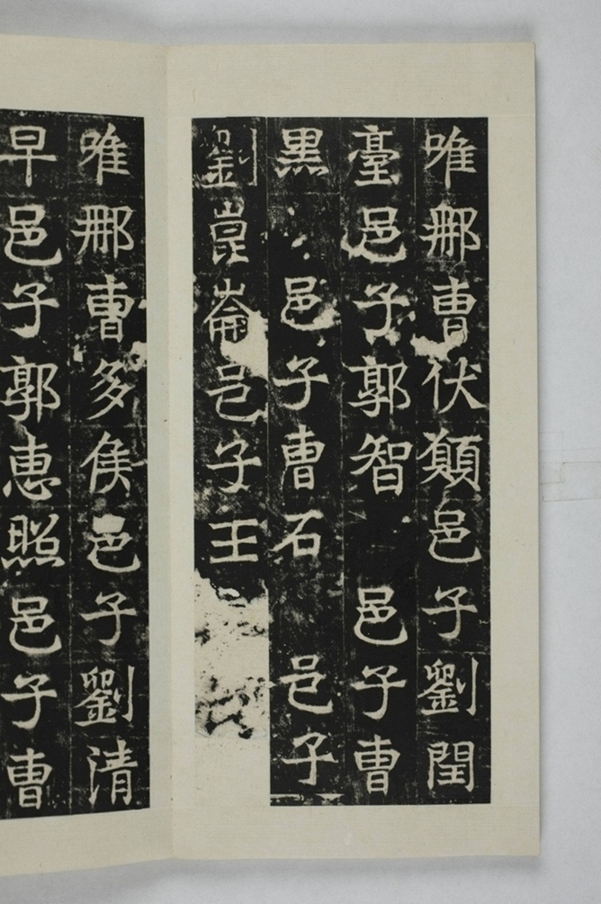 唯那曹伏顛邑子劉閏
臺邑子郭智邑子曹
黑邑子曹石邑子
劉崑崙邑子王
唯那曹多侯邑子劉清
早邑子郭惠照邑子曹